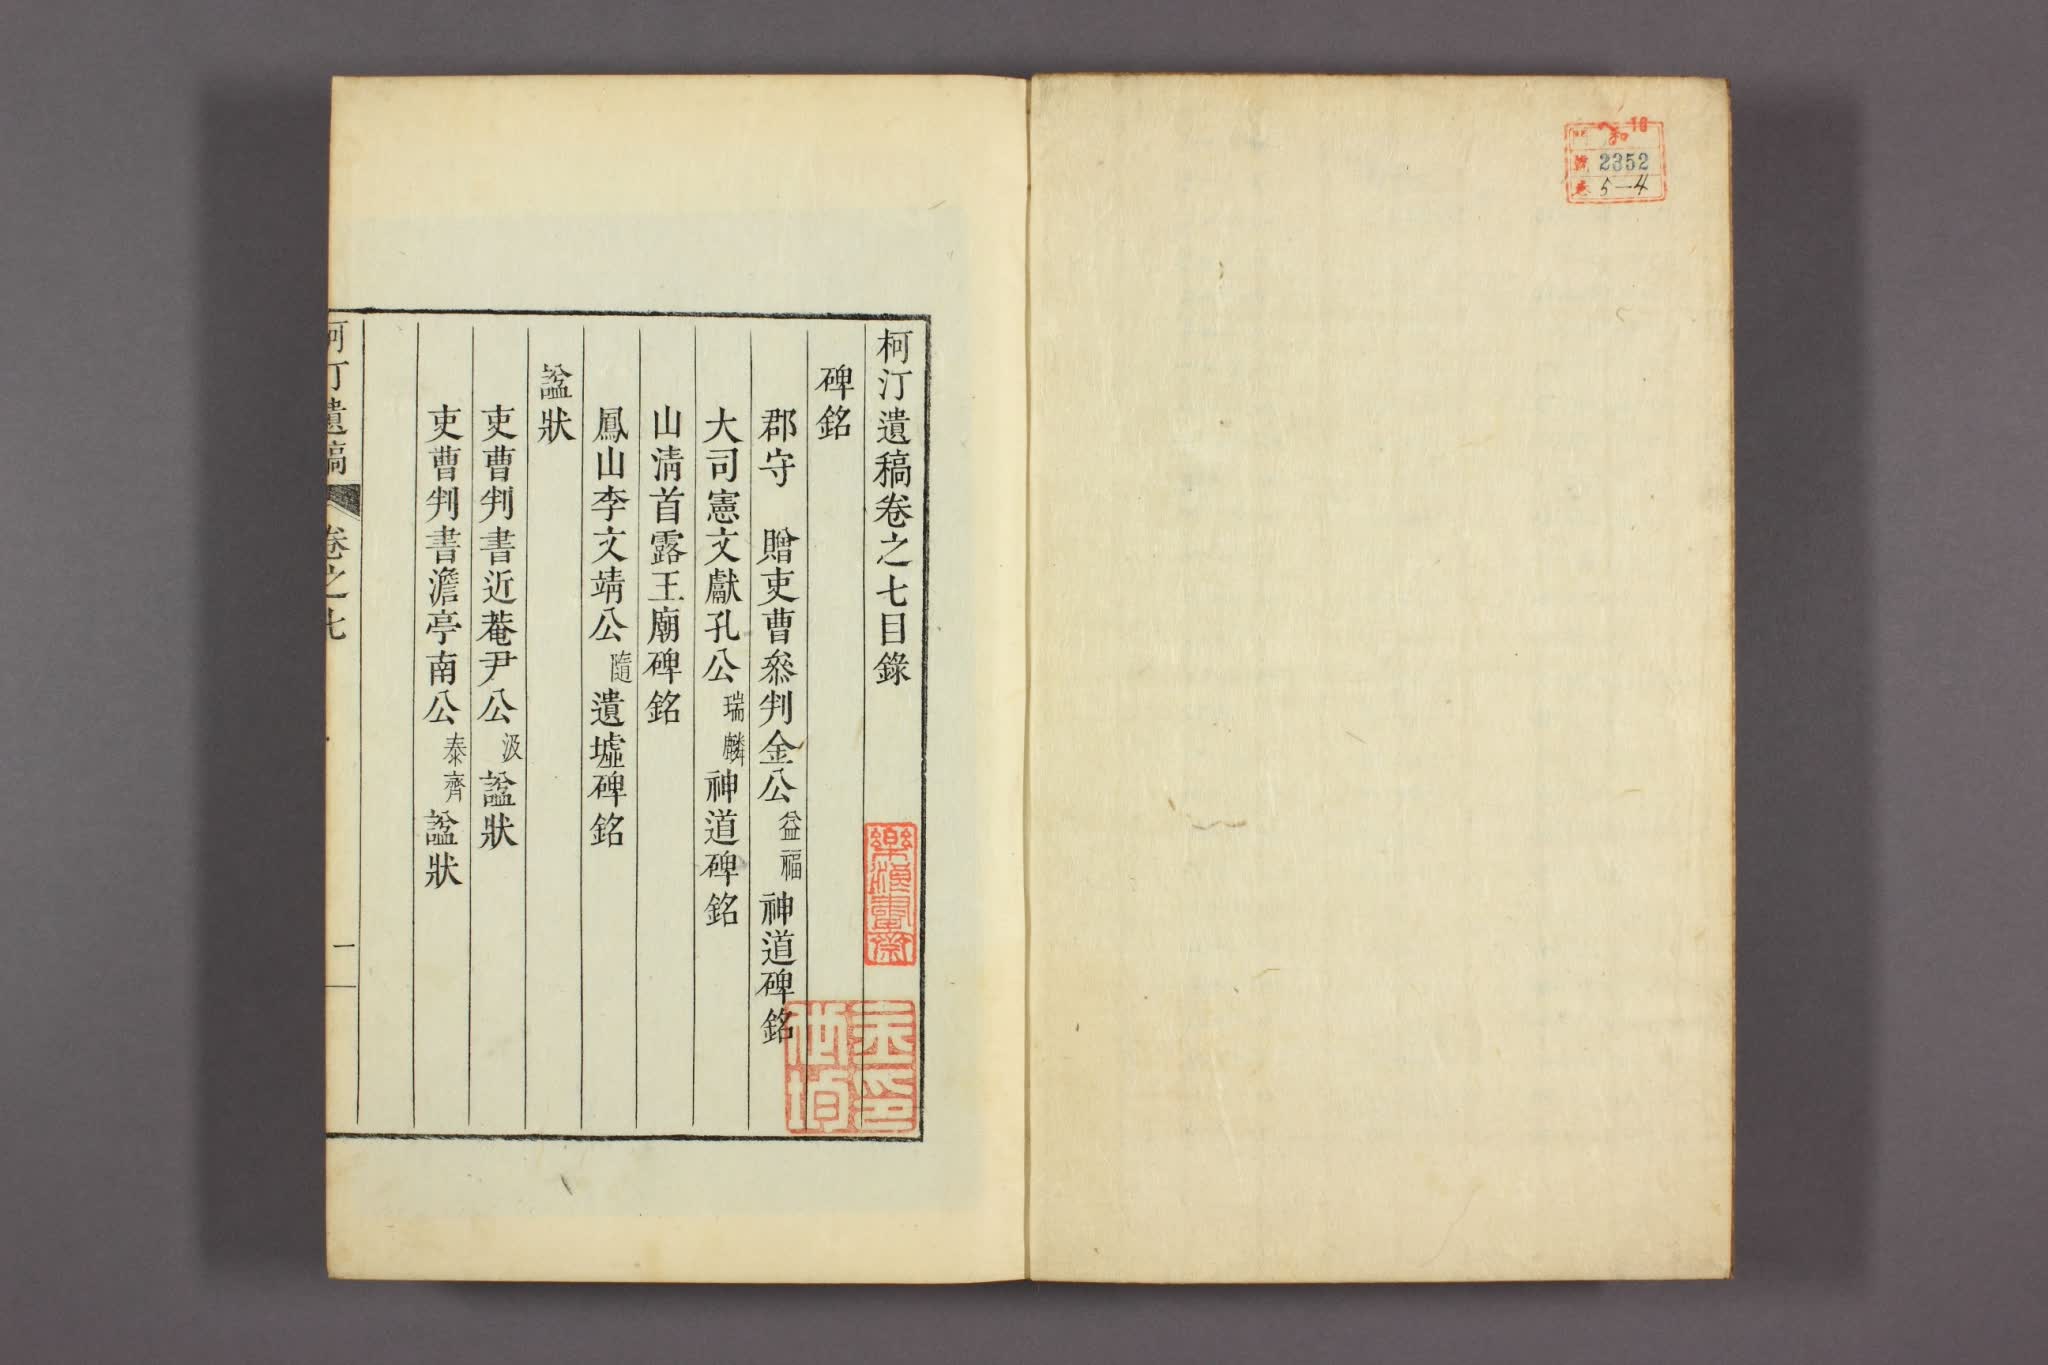 和 16
號 2352
卷 5—4
柯汀遺稿卷之七目錄
碑銘
郡守 贈吏曹叅判金公益福神道碑銘
大司憲文獻孔公瑞麟神道碑銘
山淸首露王廟碑銘
鳳山李文靖公隨遺墟碑銘
諡狀
吏曹判書近菴尹公汲諡狀
吏曹判書澹亭南公泰齊諡狀
柯汀遺稿 卷之七 一